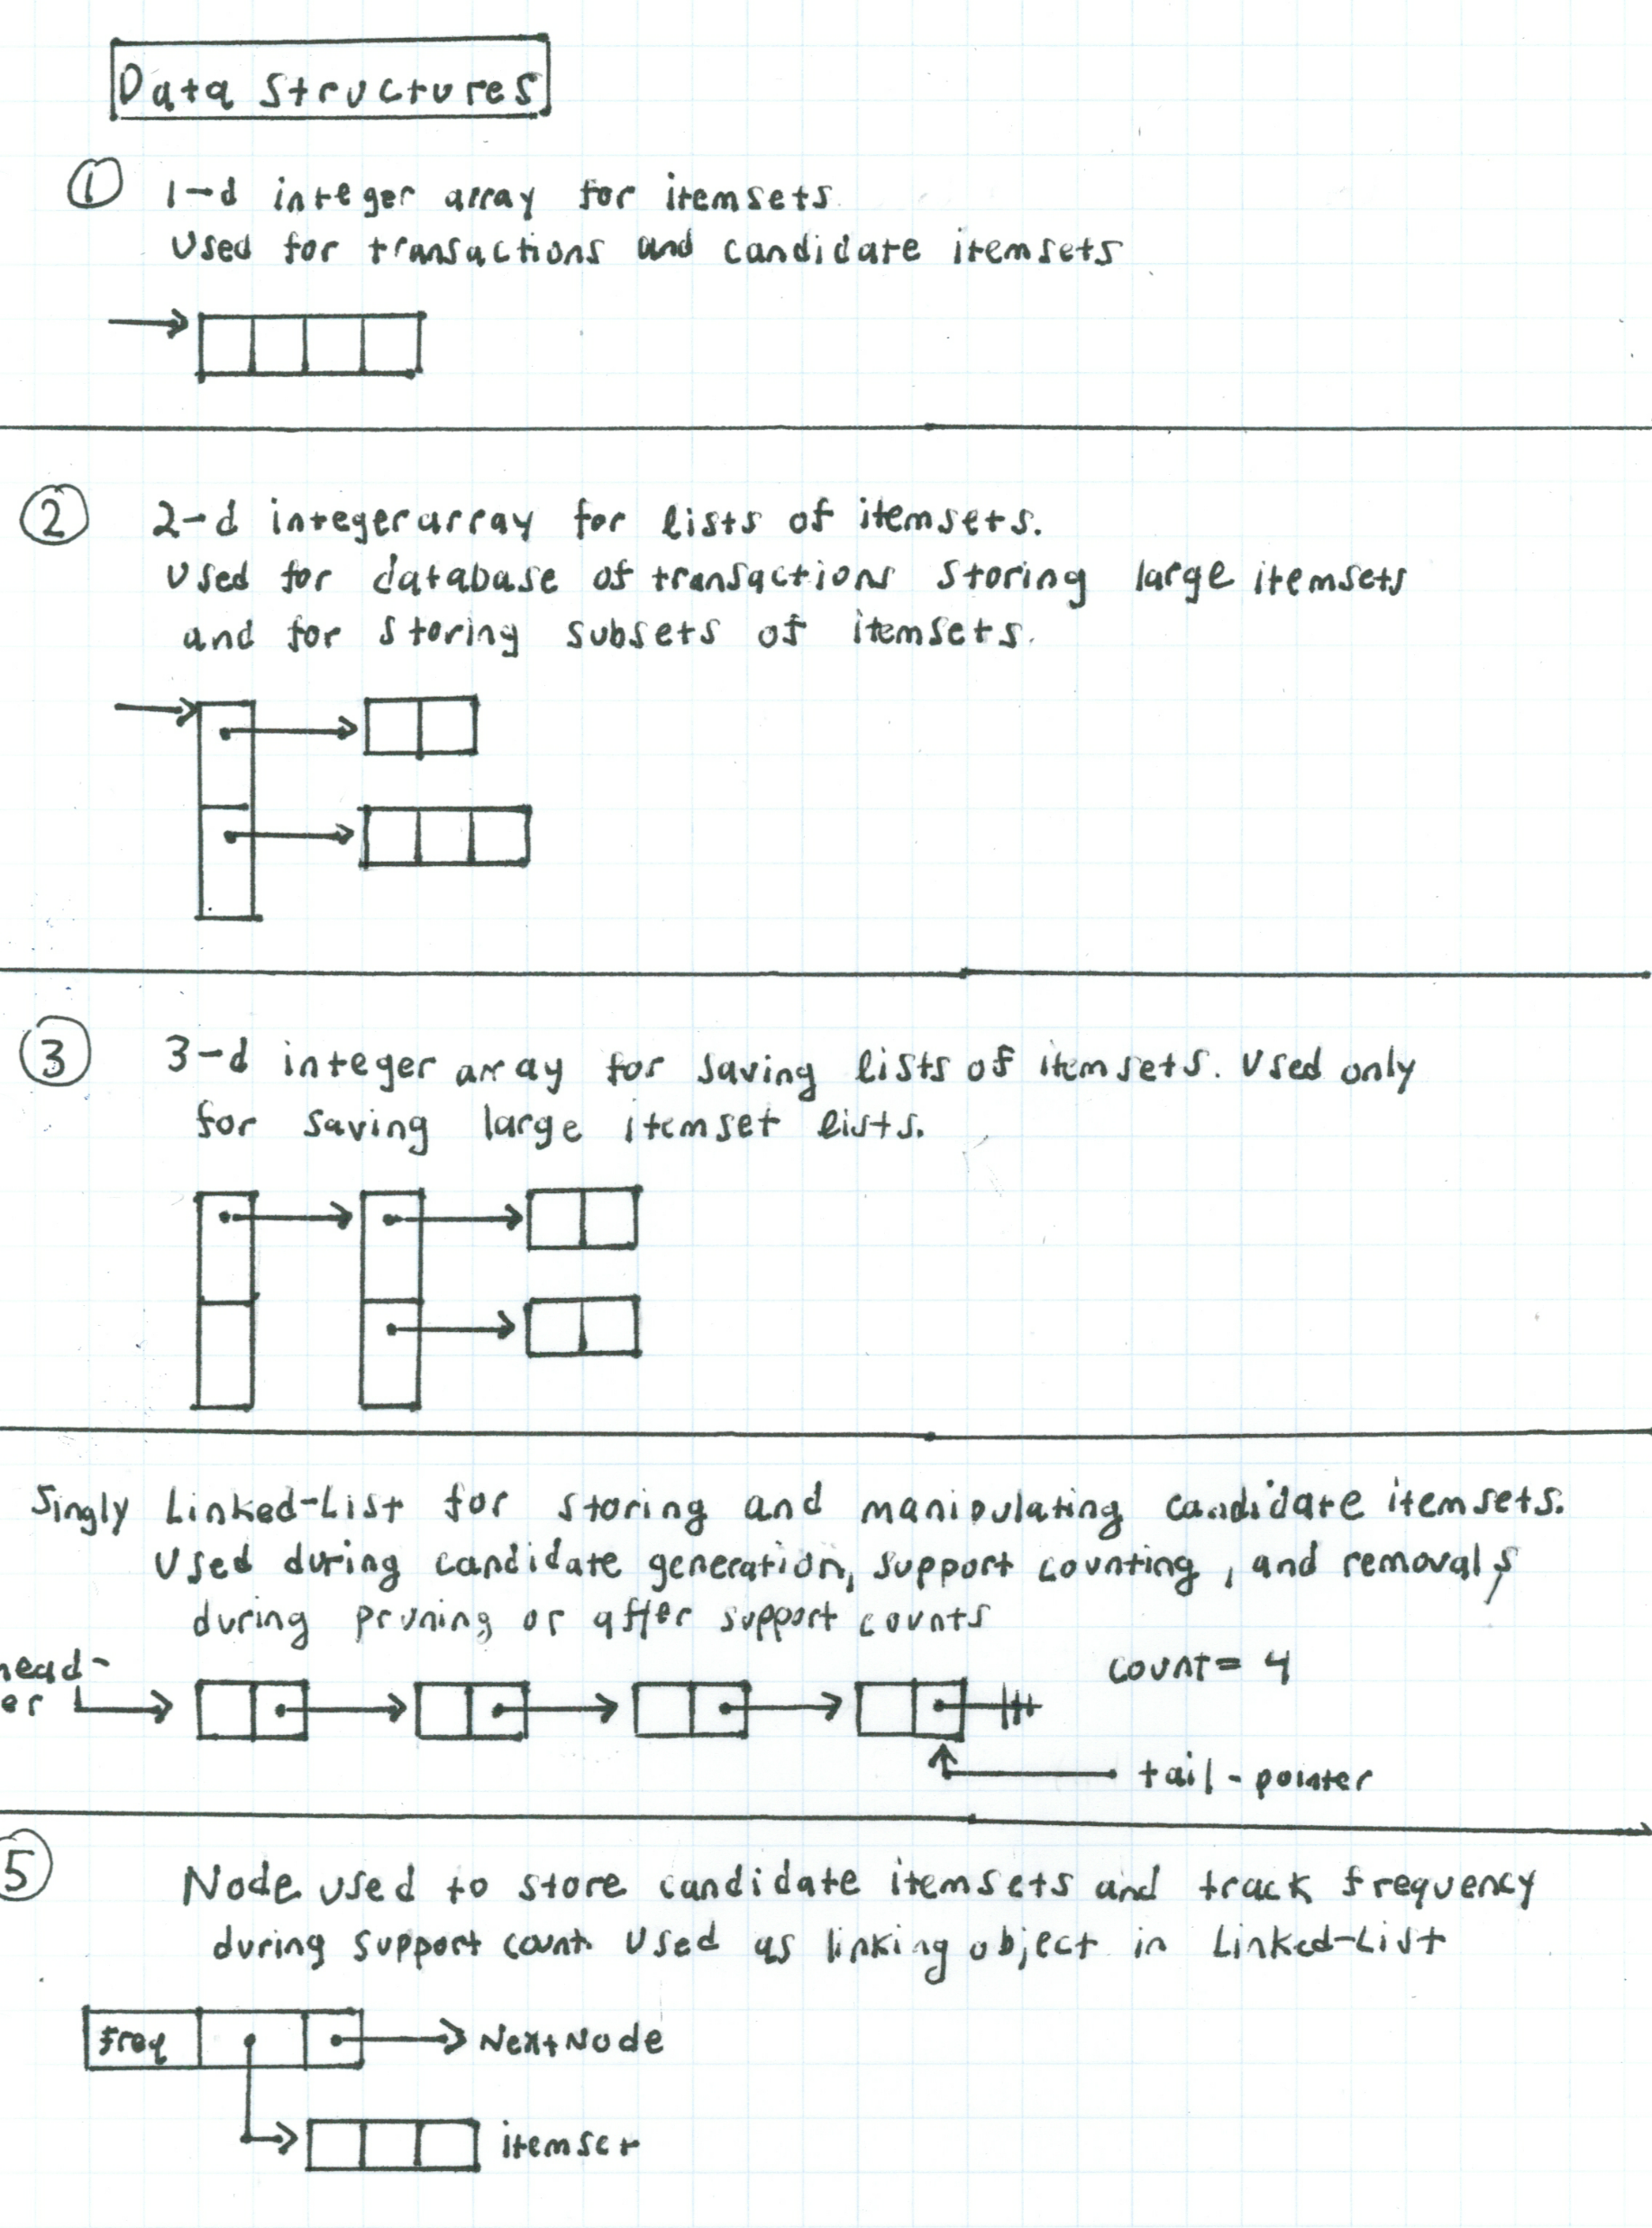 Data Structures
① 1-d integer array for itemsets
Used for transactions and candidate itemsets
② 2-d integer array for lists of itemsets.
Used for database of transactions storing large itemsets
and for storing subsets of itemsets.
③ 3-d integer array for saving lists of itemsets. Used only
for saving large itemset lists.
Singly Linked-List for storing and manipulating candidate itemsets.
Used during candidate generation, support counting, and removals
during pruning or after support counts
head-
er
count = 4
tail-pointer
⑤ Node used to store candidate itemsets and track frequency
during support count. Used as linking object in Linked-List
freq
Next Node
itemset